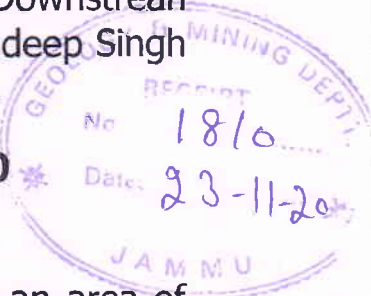 Downstrean
deep Singh
GEOLOGY & MINING DEPTT.
RECEIPT
No 1810......
Date: 23-11-20
JAMMU
an area of